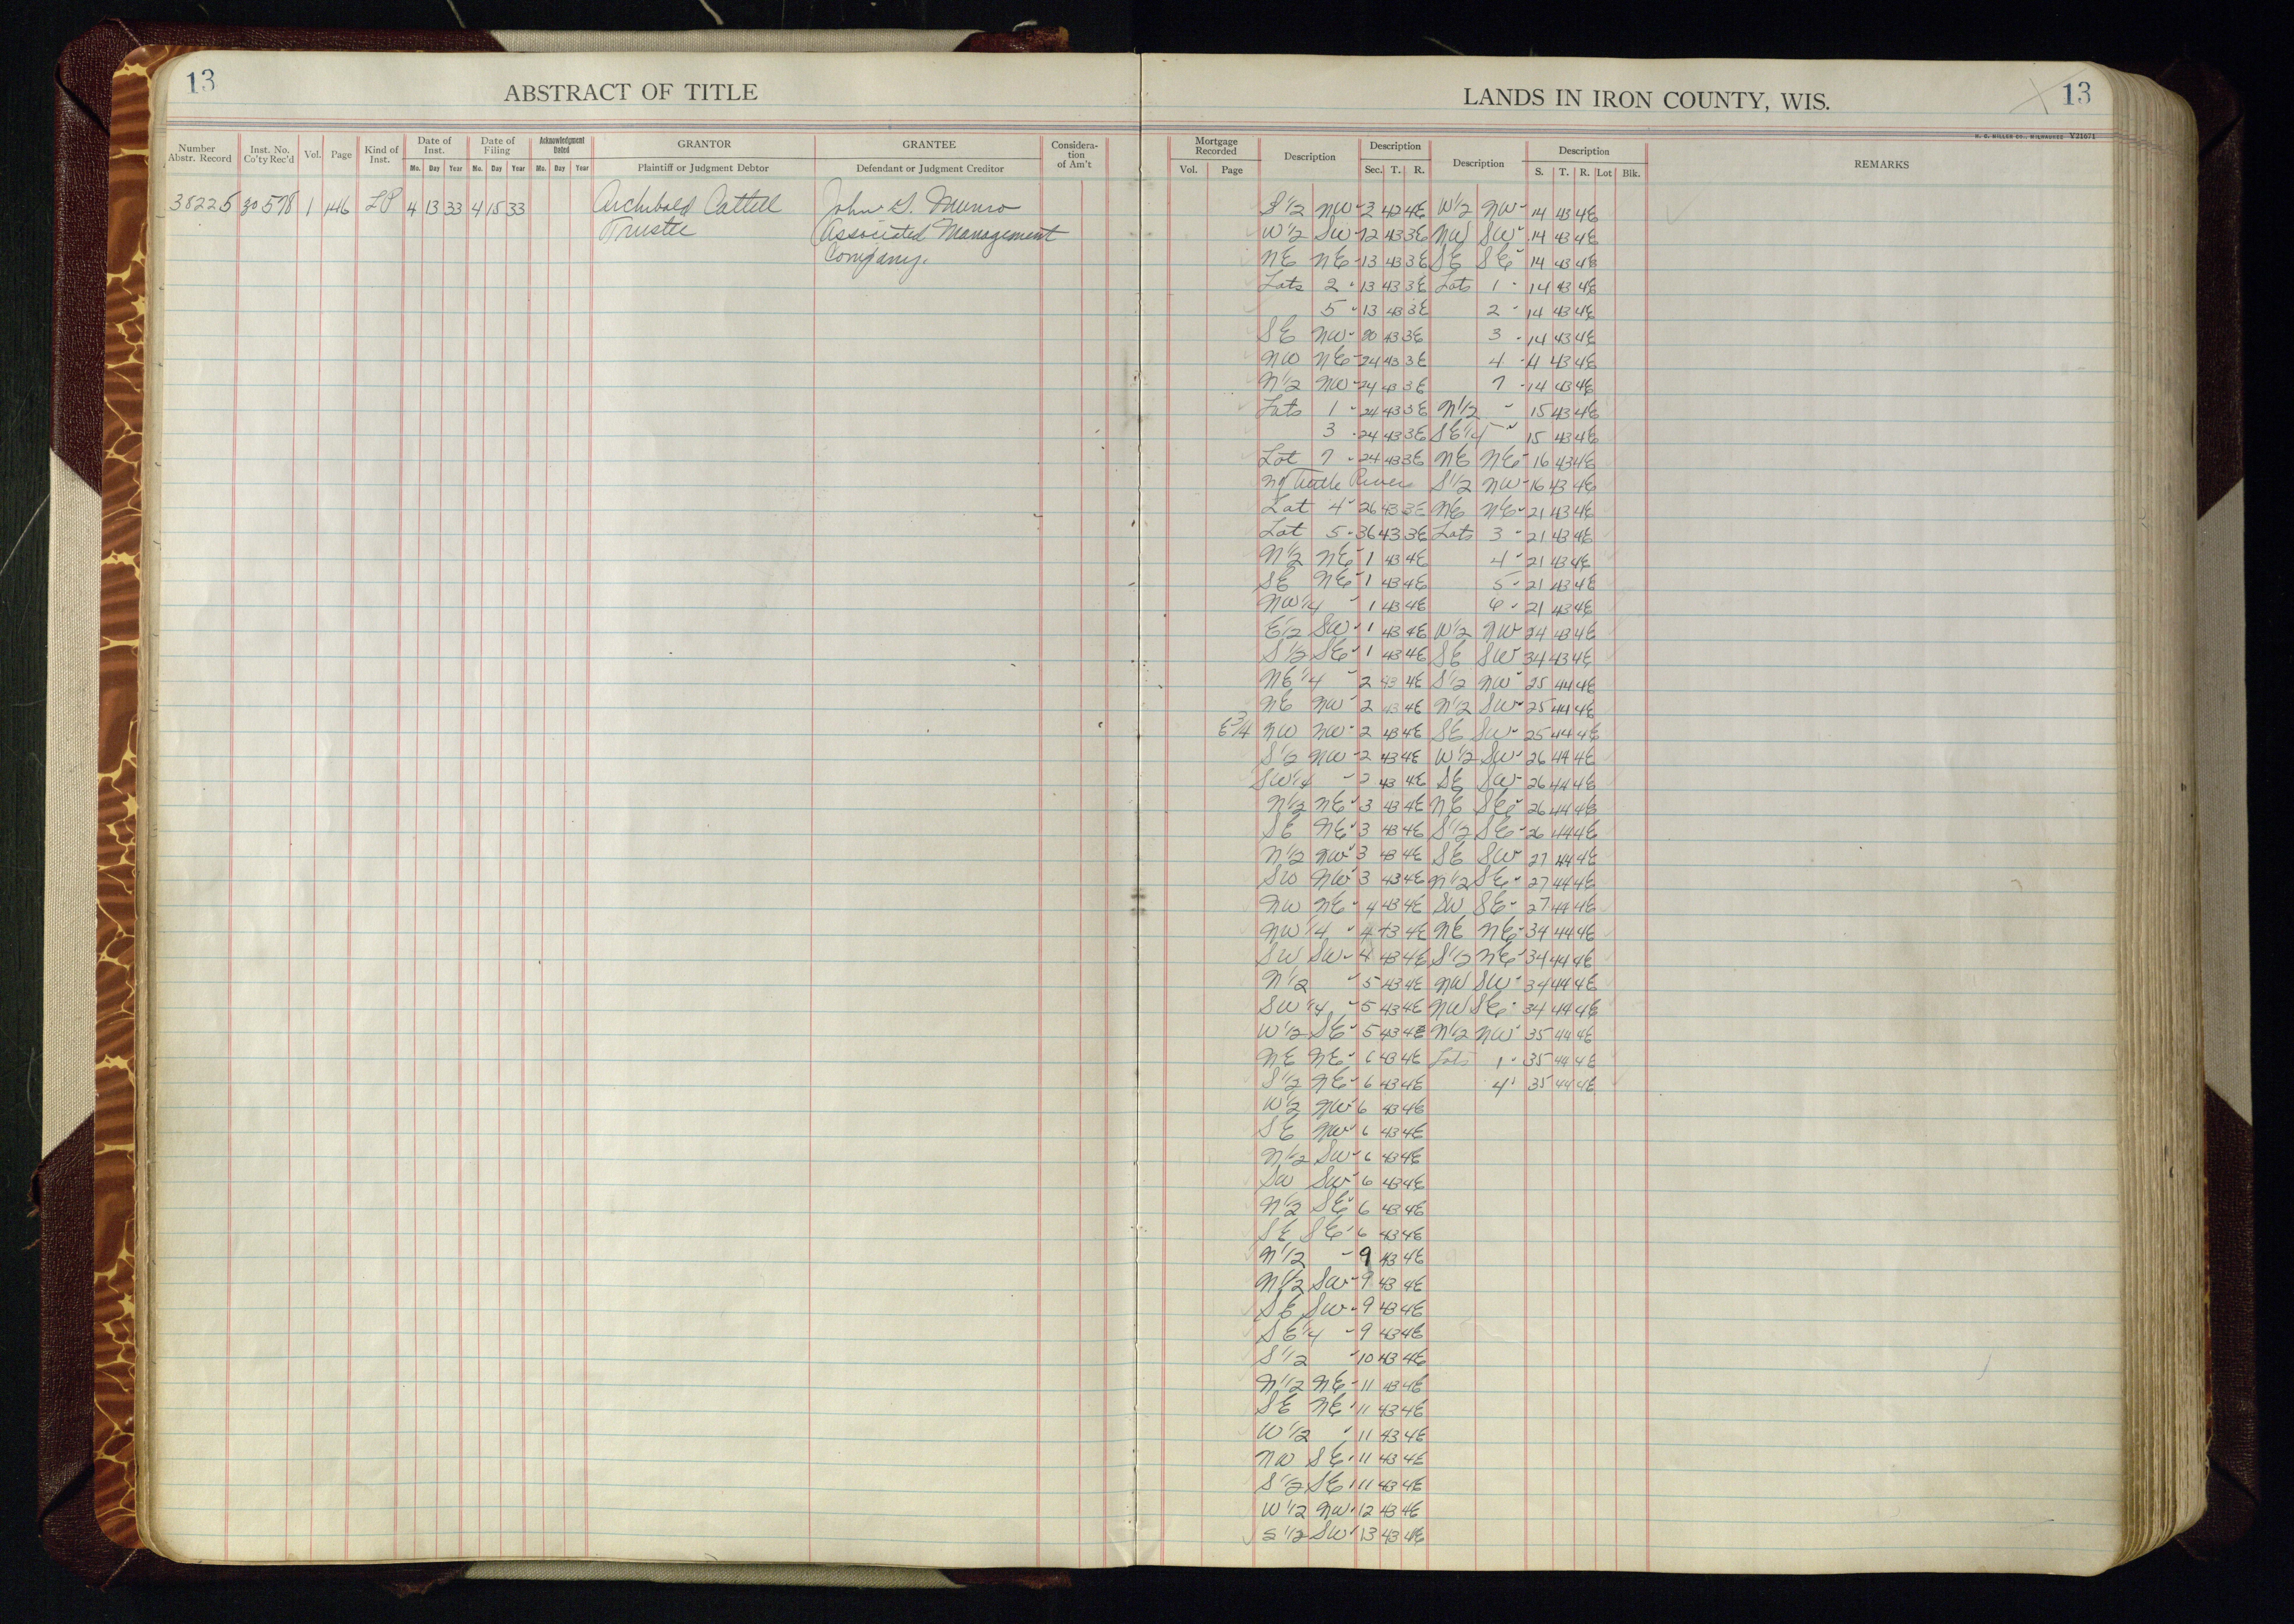 13
ABSTRACT OF TITLE
Number Abstr. Record
Inst. No. Co'ty Rec'd
Vol.
Page
Kind of Inst.
Date of Inst.
Mo. Day Year
Date of Filing
No. Day Year
Acknowledgment Dated
Mo. Day Year
GRANTOR
Plaintiff or Judgment Debtor
GRANTEE
Defendant or Judgment Creditor
Considera-
tion
of Am't
38225 30578 1 146 LP 4 13 33 4 15 33 Archibald Cattell John S. Munro
Trustee Associated Management
Company.
LANDS IN IRON COUNTY, WIS.
13
H. C. MILLER CO., MILWAUKEE V21671
Mortgage Recorded
Vol. Page
Description
Description
Sec. T. R.
Description
Description
S. T. R. Lot Blk.
REMARKS
S 1/2 NW 2 42 4E W 1/2 NW 14 43 4E
W 1/2 SW 12 43 3E NW SW 14 43 4E
NE NE 13 43 3E SE SE 14 43 4E
Lots 2 13 43 3E Lots 1 14 43 4E
5 13 43 3E 2 14 43 4E
SE NW 20 43 3E 3 14 43 4E
NW NE 24 43 3E 4 14 43 4E
N 1/2 NW 24 43 3E 7 14 43 4E
Lots 1 24 43 3E N 1/2 15 43 4E
3 24 43 3E SE 1/4 15 43 4E
Lot 7 24 43 3E NE NE 16 43 4E
N of Turtle River S 1/2 NW 16 43 4E
Lot 4 26 43 3E NE NE 21 43 4E
Lot 5 36 43 3E Lots 3 21 43 4E
N 1/2 NE 1 43 4E 4 21 43 4E
SE NE 1 43 4E 5 21 43 4E
NW 1/4 1 43 4E 6 21 43 4E
E 1/2 SW 1 43 4E W 1/2 NW 24 43 4E
S 1/2 SE 1 43 4E SE SW 34 43 4E
NE 1/4 2 43 4E S 1/2 NW 25 44 4E
NE NW 2 43 4E N 1/2 SW 25 44 4E
E 3/4 NW NW 2 43 4E SE SW 25 44 4E
S 1/2 NW 2 43 4E W 1/2 SW 26 44 4E
SW 1/4 2 43 4E SE SW 26 44 4E
N 1/2 NE 3 43 4E NE SE 26 44 4E
SE NE 3 43 4E S 1/2 SE 26 44 4E
N 1/2 NW 3 43 4E SE SW 27 44 4E
SW NW 3 43 4E N 1/2 SE 27 44 4E
NW NE 4 43 4E SW SE 27 44 4E
NW 1/4 4 43 4E NE NE 34 44 4E
SW SW 4 43 4E S 1/2 NE 34 44 4E
N 1/2 5 43 4E NW SW 34 44 4E
SW 1/4 5 43 4E NW SE 34 44 4E
W 1/2 SE 5 43 4E N 1/2 NW 35 44 4E
NE NE 6 43 4E Lots 1 35 44 4E
S 1/2 NE 6 43 4E 4 35 44 4E
W 1/2 NW 6 43 4E
SE NW 6 43 4E
N 1/2 SW 6 43 4E
SW SW 6 43 4E
N 1/2 SE 6 43 4E
SE SE 6 43 4E
N 1/2 9 43 4E
N 1/2 SW 9 43 4E
SE SW 9 43 4E
SE 1/4 9 43 4E
S 1/2 10 43 4E
N 1/2 NE 11 43 4E
SE NE 11 43 4E
W 1/2 11 43 4E
NW SE 11 43 4E
S 1/2 SE 11 43 4E
W 1/2 NW 12 43 4E
S 1/2 SW 13 43 4E